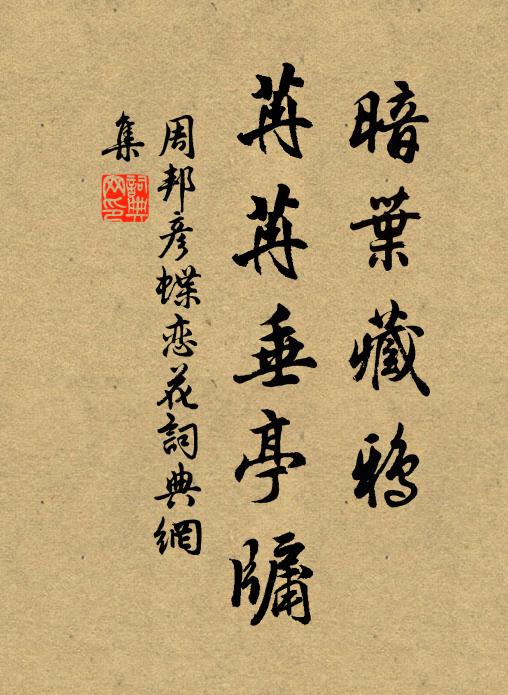 暗葉藏鴉
苒苒垂亭牗
周邦彦蝶恋花詞典網
集
詞典
网印